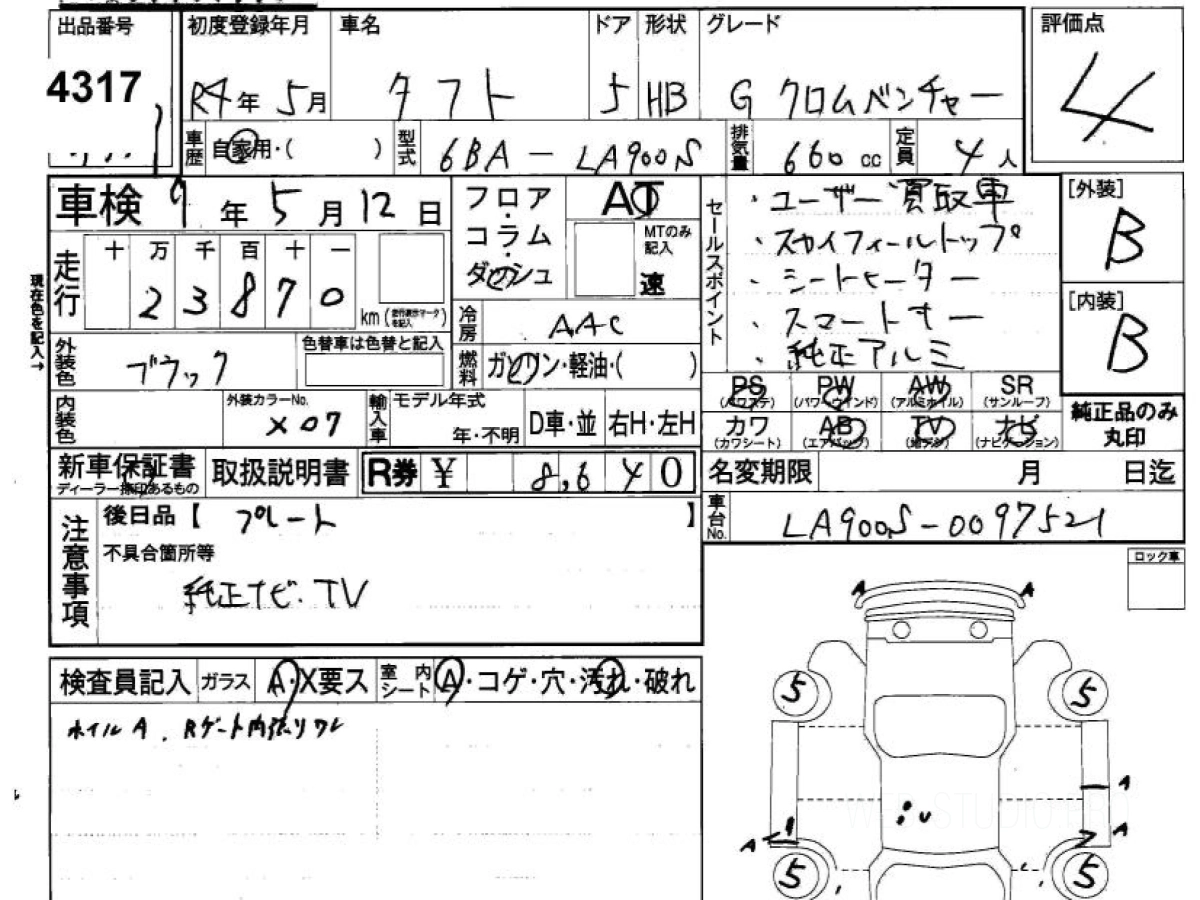 出品番号 初度登録年月 車名 ドア 形状 グレード 評価点
4317 R4年 5月 タフト 5 HB G クロムベンチャー 4
車歴 自家用・( ) 型式 6BA-LA900S 排気量 660 cc 定員 4人
車検 9年 5月 12日 フロア・コラム・ダッシュ AT MTのみ記入 速
走行 十 万 千 百 十 一
2 3 8 7 0 km (走行表示マークを記入)
現在色を記入→
外装色 ブラック 色替車は色替と記入
冷房 AAC
燃料 ガソリン・軽油・( )
内装色 外装カラーNo. X07 輸入車 モデル年式 年・不明 D車・並 右H・左H
セールスポイント
・ユーザー買取車
・スカイフィールトップ
・シートヒーター
・スマートキー
・純正アルミ
[外装] B
[内装] B
PS (パワステ) PW (パワーウインド) AW (アルミホイル) SR (サンルーフ)
カワ (カワシート) AB (エアバッグ) TV (地デジ) ナビ (ナビゲーション)
純正品のみ丸印
新車保証書 ディーラー捺印あるもの 取扱説明書 R券 ¥ 8,640
名変期限 月 日迄
車台No. LA900S-0097521
注意事項
後日品【 プレート 】
不具合箇所等
純正ナビ・TV
ロック車
検査員記入 ガラス A・X要ス 室内シート A・コゲ・穴・汚れ・破れ
ホイルA. Rゲート内張りワレ
A A
5 5
A
A A
5 5